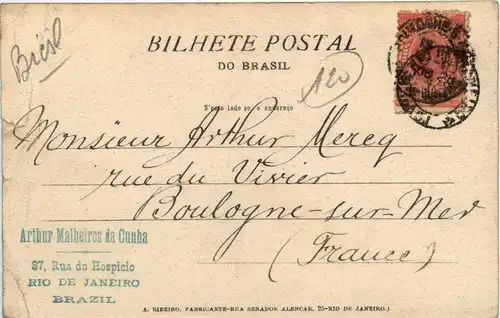 Brésil
BILHETE POSTAL
DO BRASIL
120
N'este lado so o endereço
Monsieur Arthur Mereq
rue du Vivier
Boulogne-sur-Mer
(France)
Arthur Malheiros da Cunha
87, Rua do Hospicio
RIO DE JANEIRO
BRAZIL
A. RIBEIRO, FABRICANTE-RUA SENADOR ALENCAR, 25-RIO DE JANEIRO.)